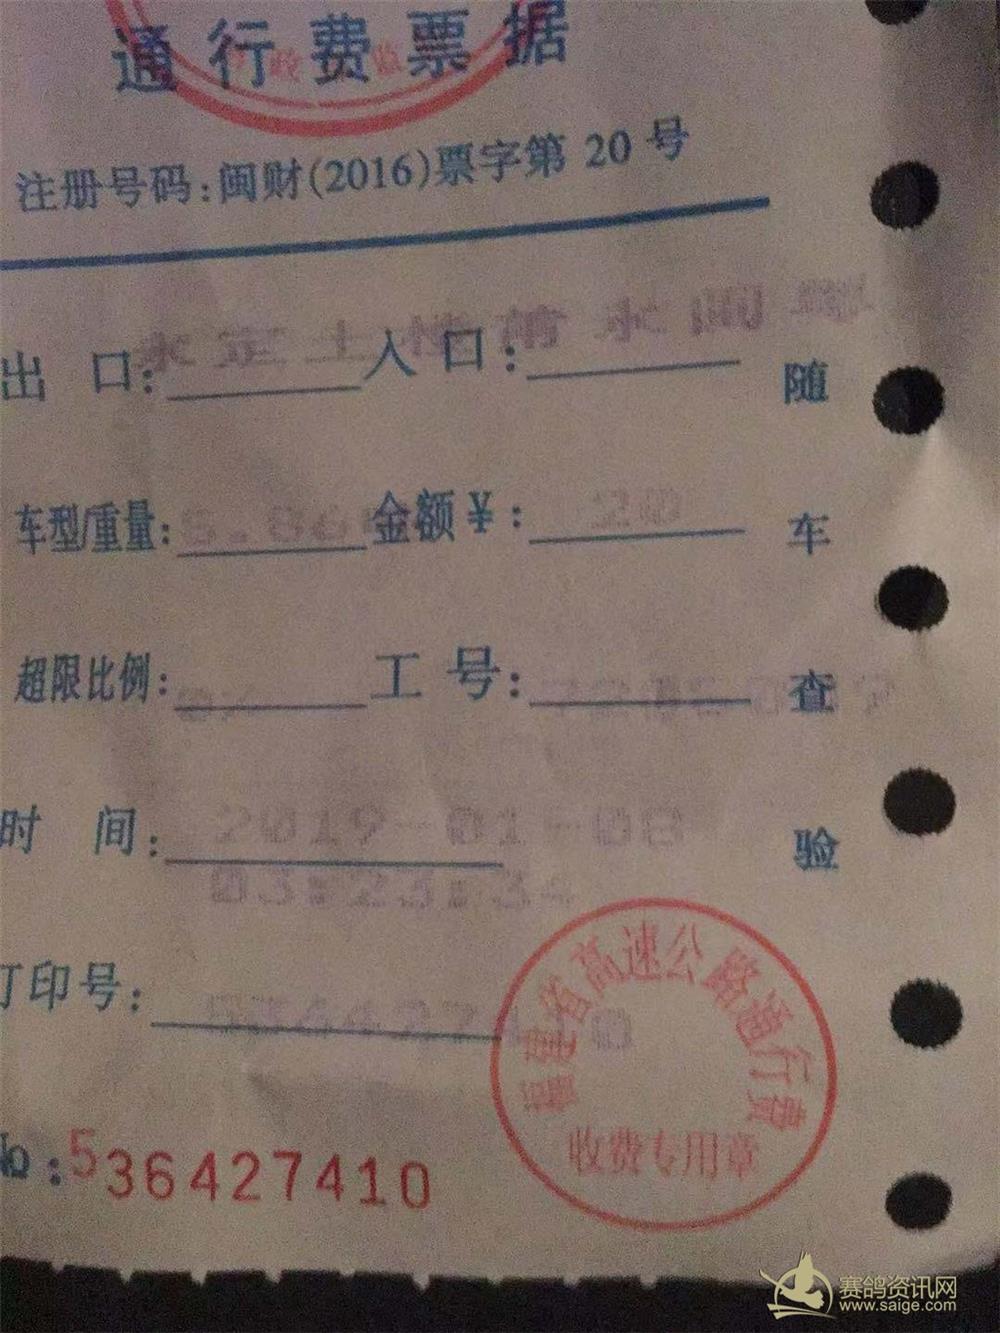 通行费票据
注册号码:闽财(2016)票字第 20 号
出 口: 永定土 入 口: 永
车型/重量: 金额¥: 20
超限比例: 0% 工 号:
时 间: 2019-01-08
03:23:34
打印号:
No:536427410
随车查验
福建省高速公路通行费
收费专用章
赛鸽资讯网
www.saige.com